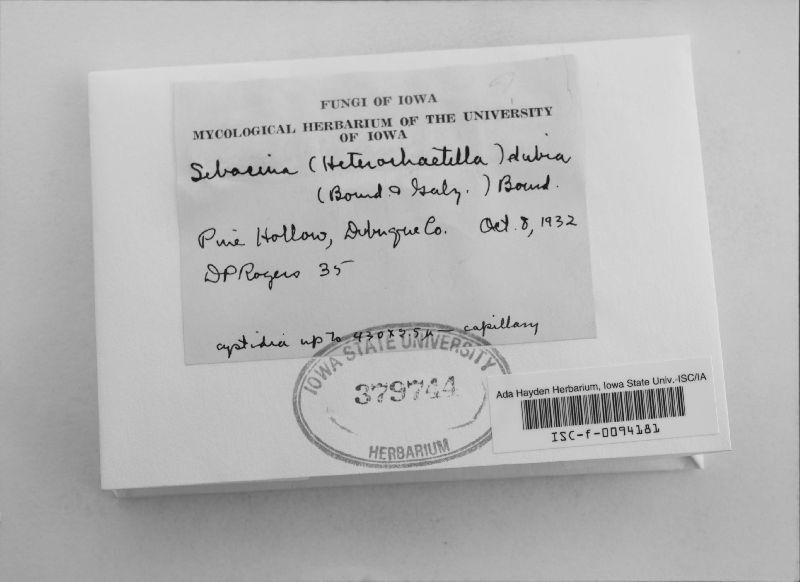 FUNGI OF IOWA
MYCOLOGICAL HERBARIUM OF THE UNIVERSITY
OF IOWA
Sebacina (Heterochaetella) dubia
(Bourd. & Galz.) Bourd.
Pine Hollow, Dubuque Co. Oct. 8, 1932
DP Rogers 35
cystidia up to 430 x 3.5 µ — capillary
IOWA STATE UNIVERSITY
379744
HERBARIUM
Ada Hayden Herbarium, Iowa State Univ.-ISC/IA
ISC-f-0094181